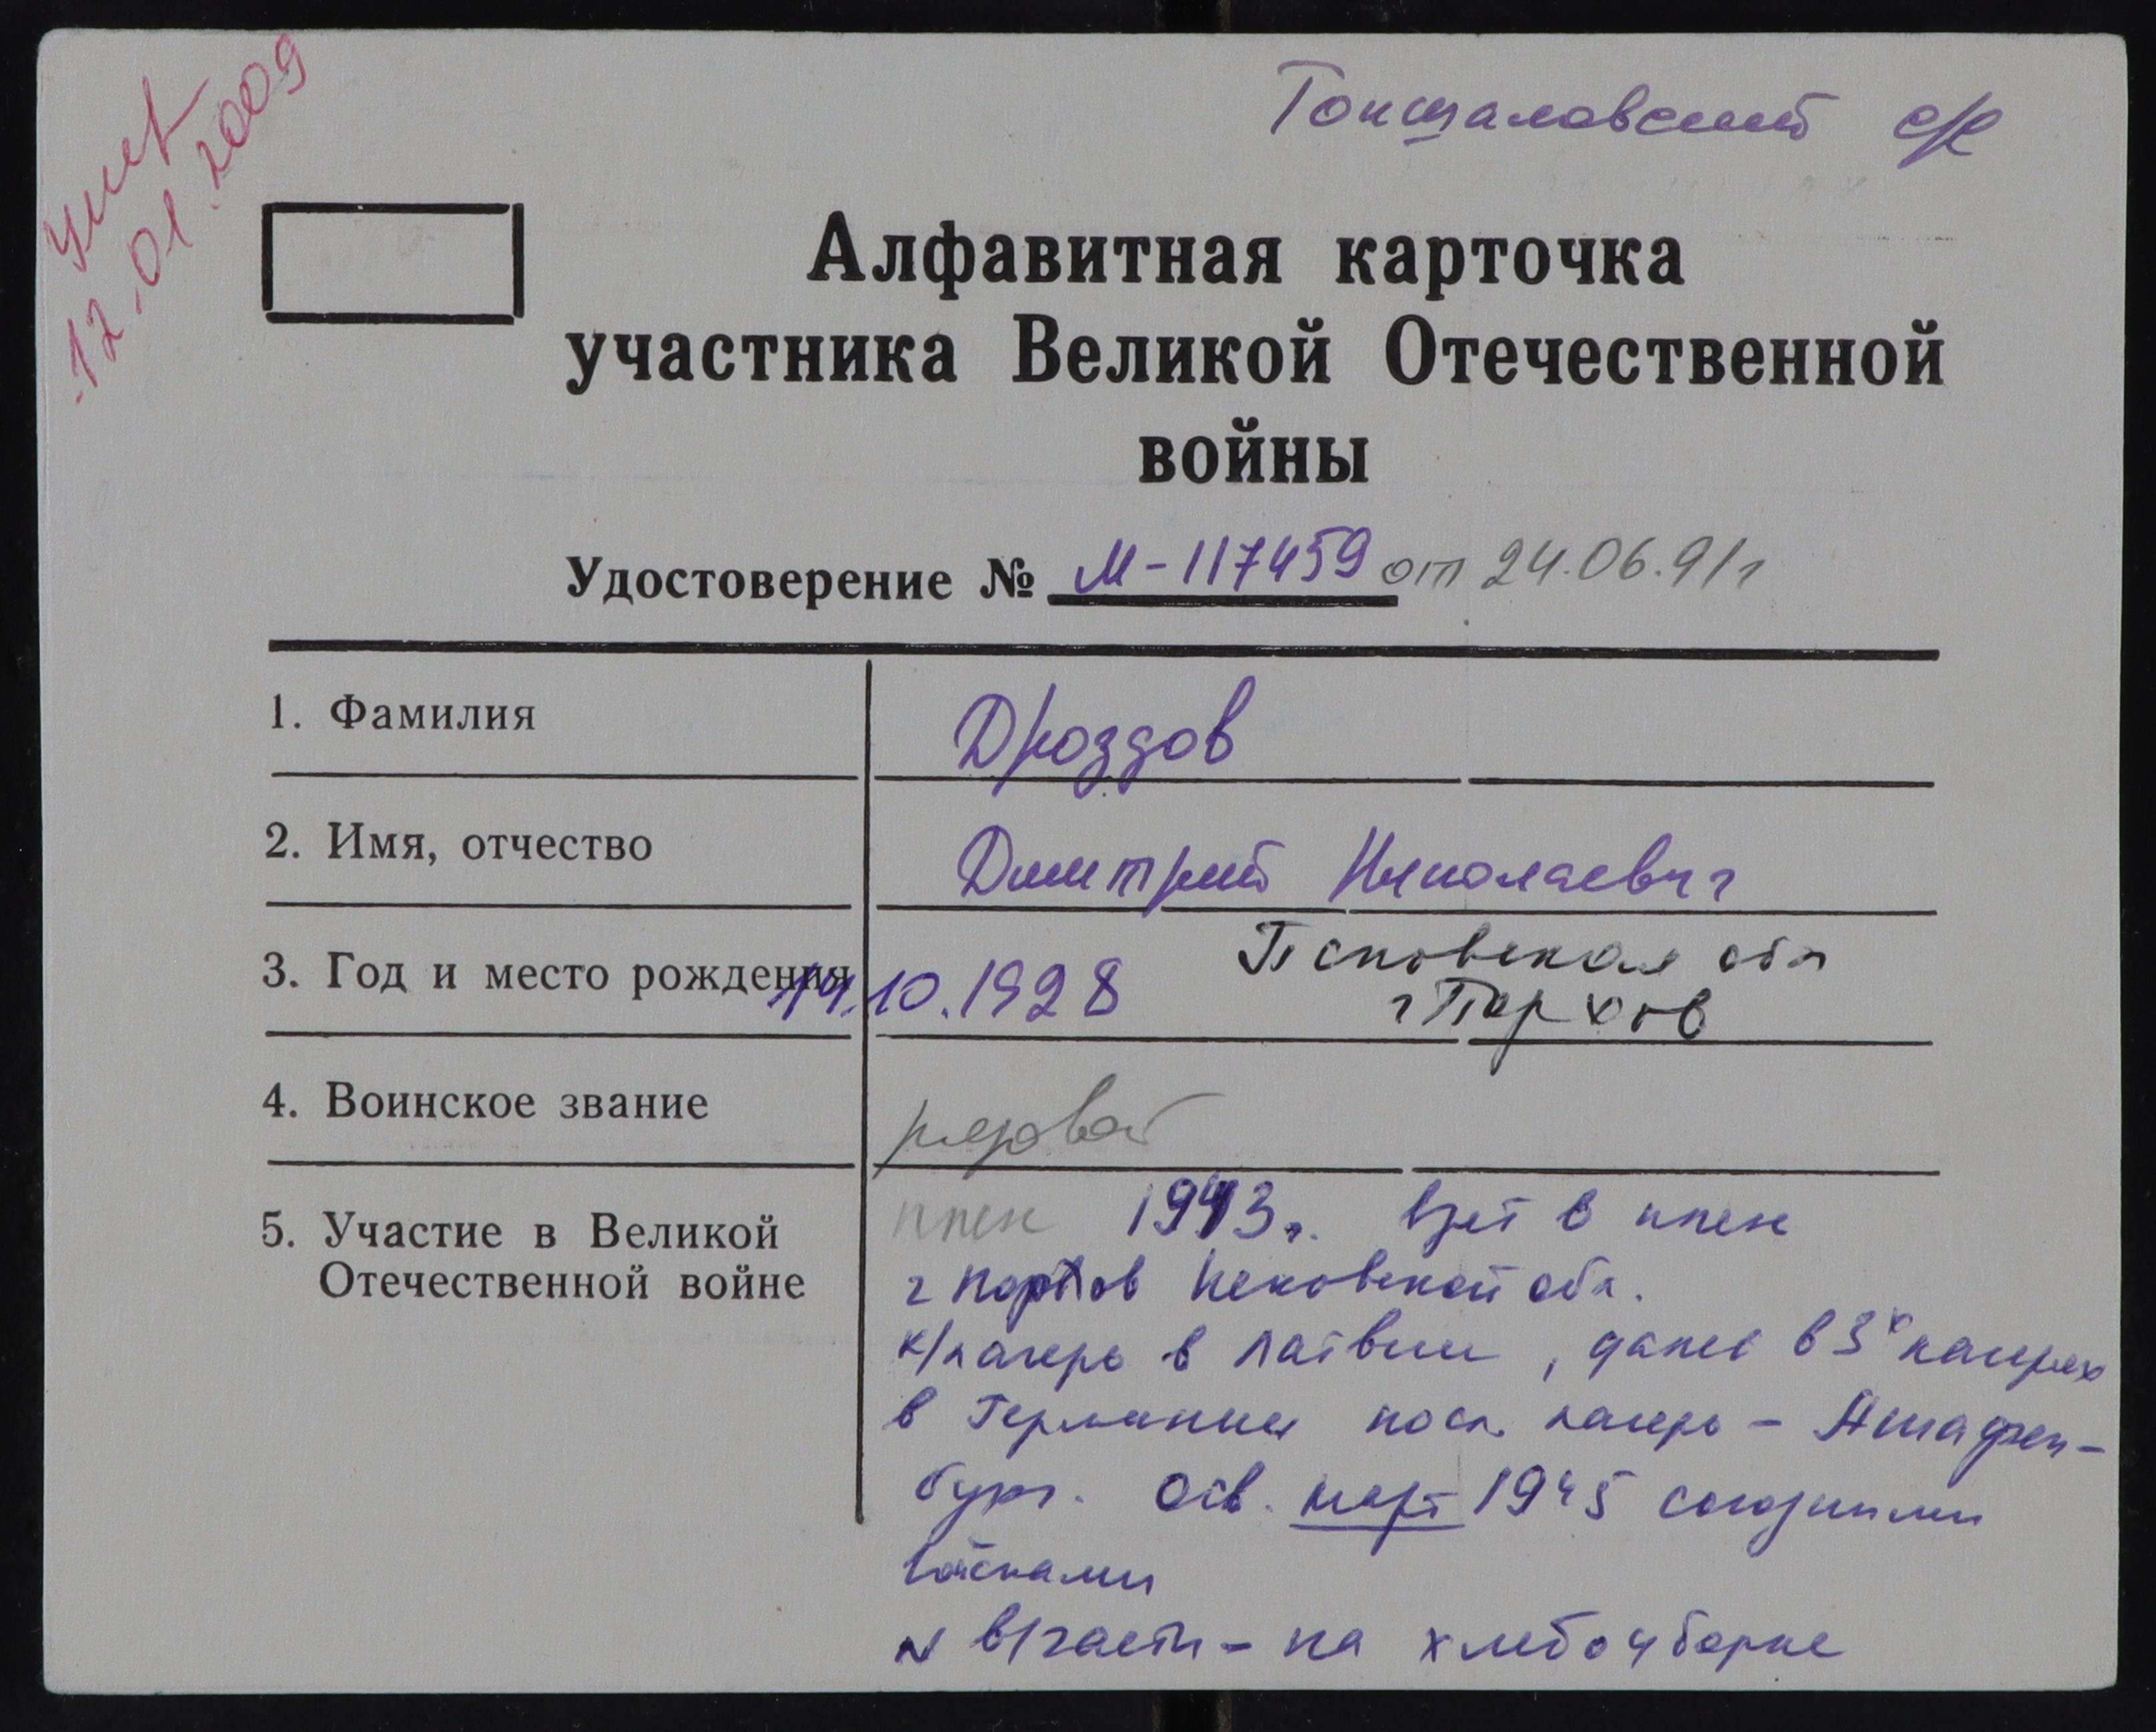 умер
12.01.2009
Тоншаловский с/с
Алфавитная карточка
участника Великой Отечественной
войны
Удостоверение № М-117459 от 24.06.91г
1. Фамилия Дроздов
2. Имя, отчество Дмитрий Николаевич
3. Год и место рождения 14.10.1928 Псковская обл
г Порхов
4. Воинское звание рядовой
5. Участие в Великой плен 1943г. взят в плен
Отечественной войне г Порхов Псковской обл.
к/лагерь в Латвии, далее в 3х лагерях
в Германии посл. лагерь - Ашафен-
бург. Осв. март 1945 союзными
войсками
N в/части - на хлебоуборке